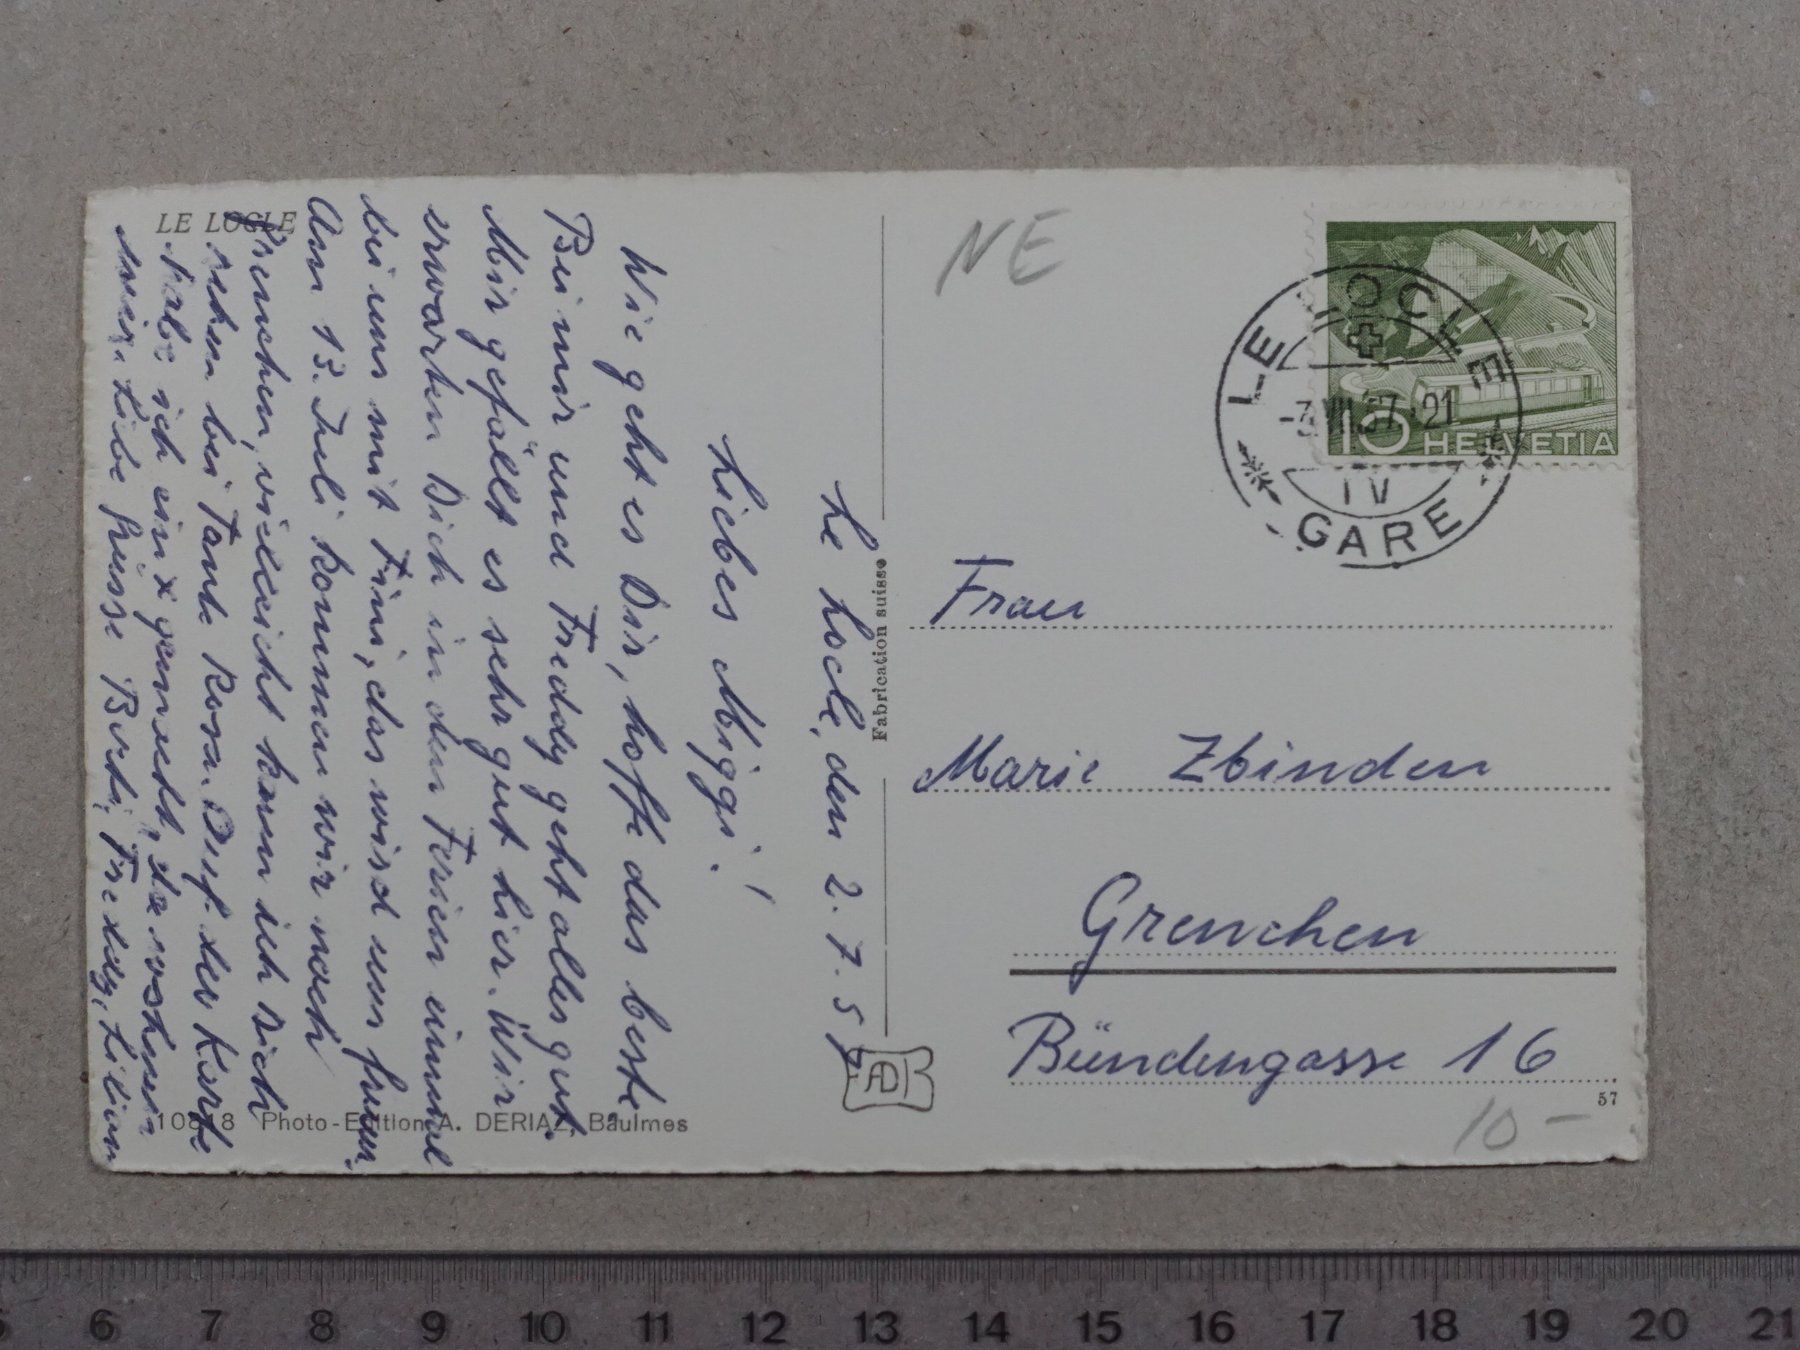 LE LOCLE
Le Locle, den 2.7.57
Liebes Miggi!
Wie geht es Dir, hoffe das beste.
Bei mir und Freddy geht alles gut.
Mir gefällt es sehr gut hier. Wir
erwarten Dich in den Ferien einmal
bei uns mit Fini, das wird uns freuen.
Am 13. Juli kommen wir noch
Grenchen, vielleicht kann ich Dich
sehen bei Tante Rosa. Auf der Karte
habe ich ein x gemacht, da wohnen
wir. Liebe Grüsse Berti, Freddy, Lilian
10818 Photo-Edition A. DERIAZ, Baulmes
Fabrication suisse
AD B
NE
LE LOCLE
-3.VII.57.-21
IV
GARE
10 HELVETIA
Frau
Marie Zbinden
Grenchen
Bündengasse 16
57
10 -
5 6 7 8 9 10 11 12 13 14 15 16 17 18 19 20 21